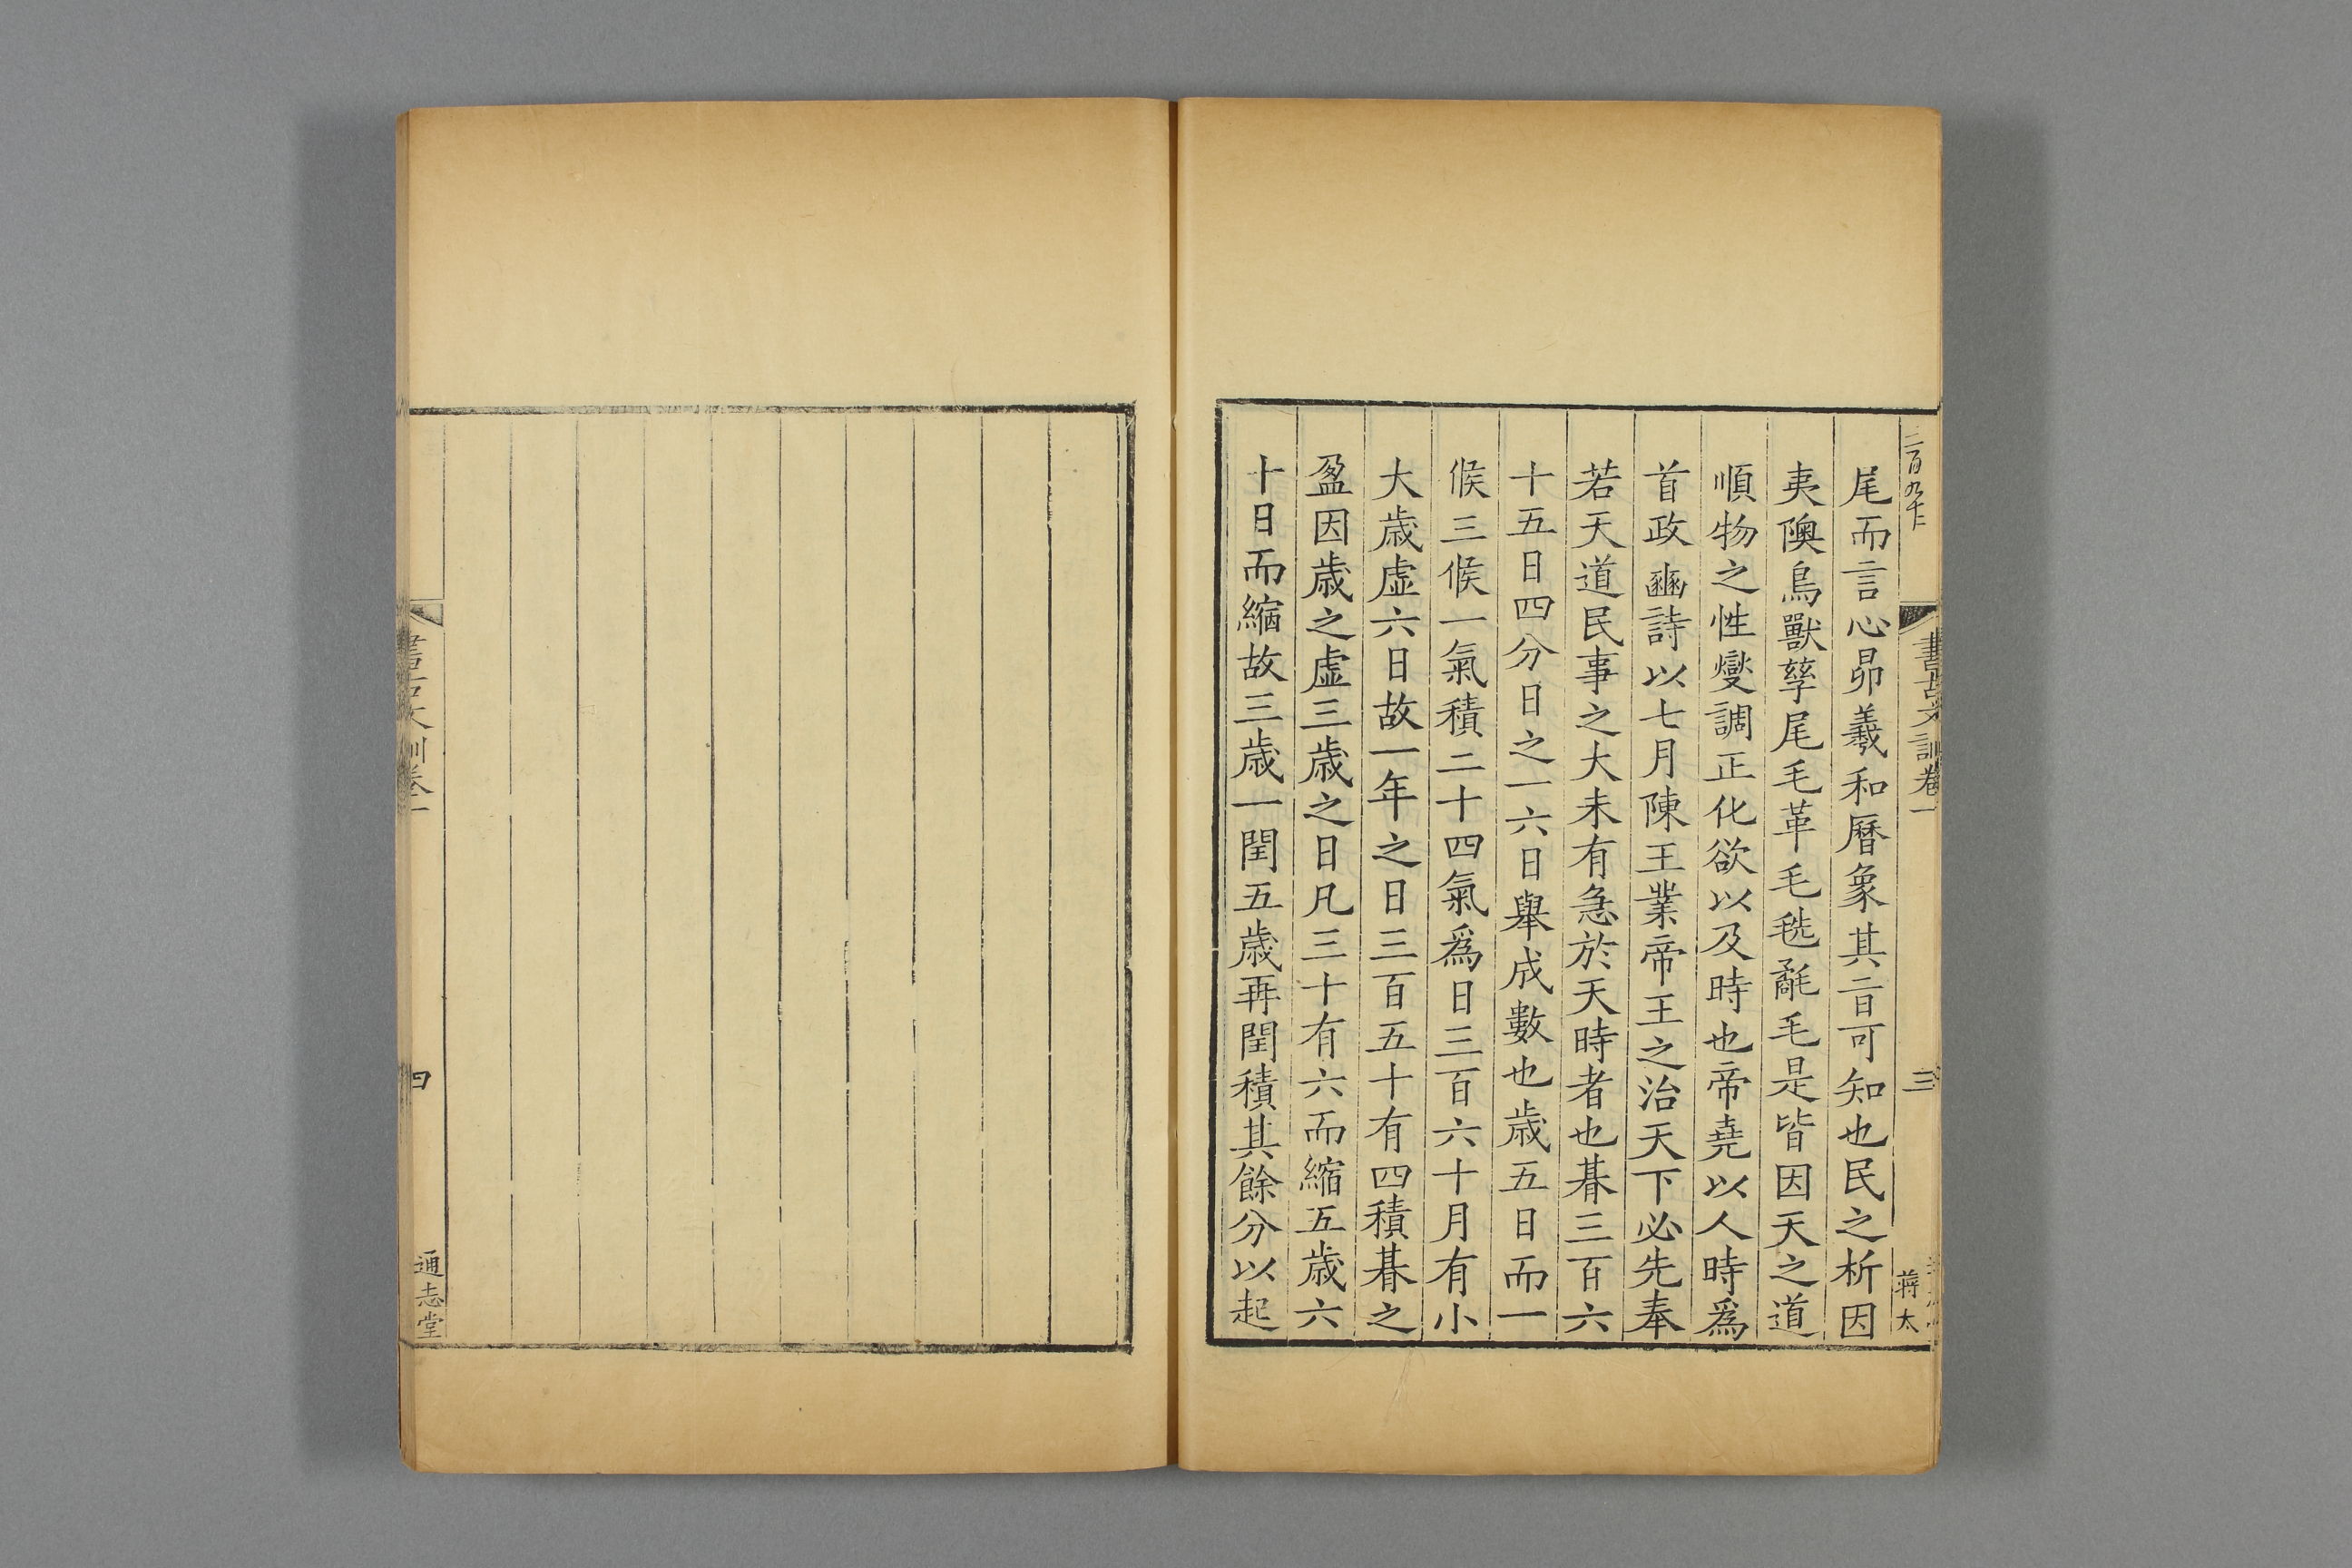 二百九十二
書古文訓卷一
三
蔣太
尾而言心昴羲和曆象其二百可知也民之析因
夷隩鳥獸孳尾毛毛革毛毨氄毛是皆因天之道
順物之性燮調正化欲以及時也帝堯以人時爲
首政豳詩以七月陳王業帝王之治天下必先奉
若天道民事之大未有急於天時者也朞三百六
十五日四分日之一六日舉成數也歲五日而一
候三候一氣積二十四氣爲日三百六十月有小
大歲虛六日故一年之日三百五十有四積朞之
盈因歲之虛三歲之日凡三十有六而縮五歲六
十日而縮故三歲一閏五歲再閏積其餘分以起
書古文訓卷一
四
通志堂